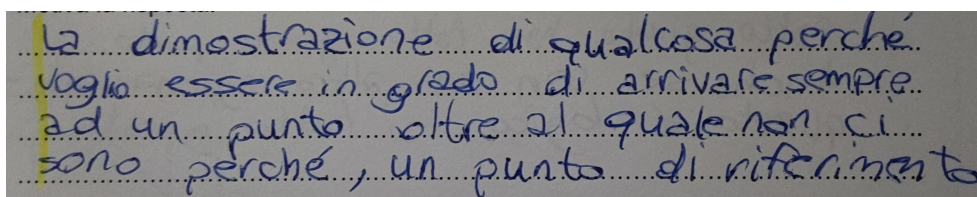 La dimostrazione di qualcosa perché
voglio essere in grado di arrivare sempre
ad un punto oltre al quale non ci
sono perché, un punto di riferimento